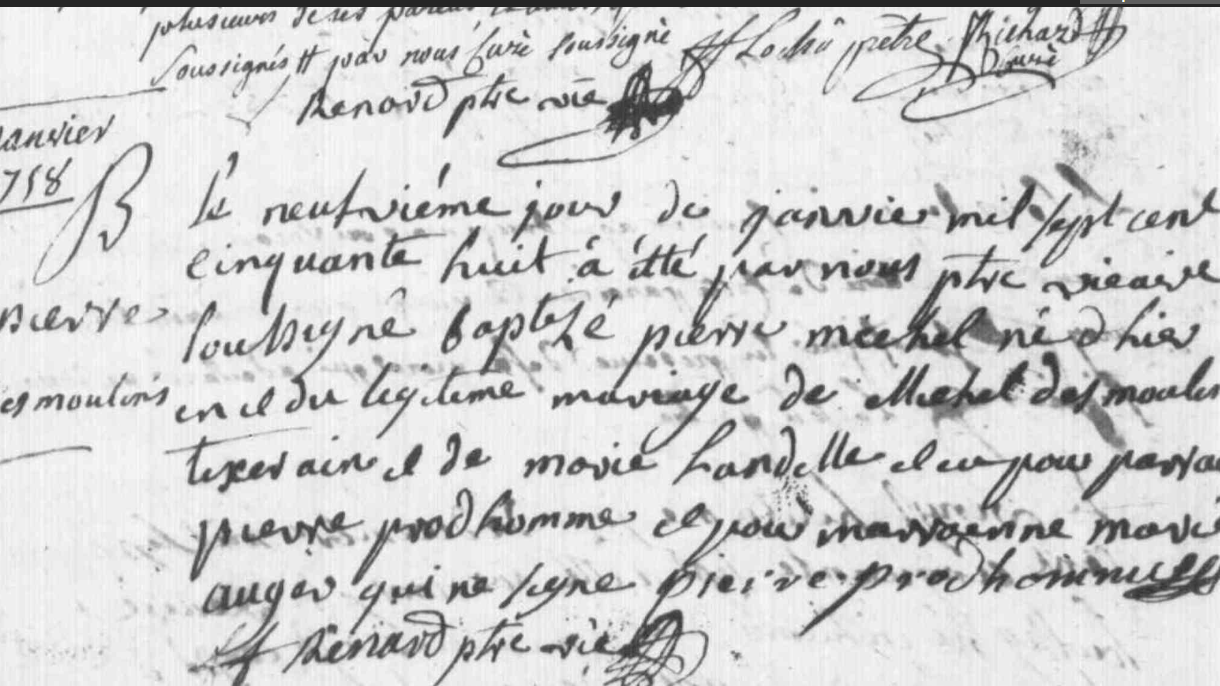 plusieurs de ses parens
soussignés ff par nous Curé soussigné
ff Loché pretre Richard
Curé
Renard ptre vic
janvier
1758
B
le neufvième jour de janvier mil sept cent
cinquante huit à été par nous ptre vicaire
soussigné baptisé pierre michel né d'hier
pierre
desmoulins
et du legitime mariage de Michel desmoulin
et de marie Landelle et eu pour parrai
pierre prodhomme et pour marrainne marie
auger qui ne signe pierre prodhomme
Renard ptre vic